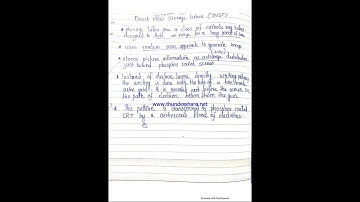 Direct View Storage Tubes (DVST)
* storage tubes are a class of cathode ray tubes
designed to hold an image for a long period of time
* uses random scan approach to generate image
* stores picture information as a charge distribution
just behind phosphor coated screen
* Instead of electron beam directly writing
the writing is done with the help of a
wire grid. It is mounted just before the screen in
the path of electron beam from the gun.
www.thundershare.net
* This pattern is transferred to phosphor coated
CRT by a continuous flood of electrons